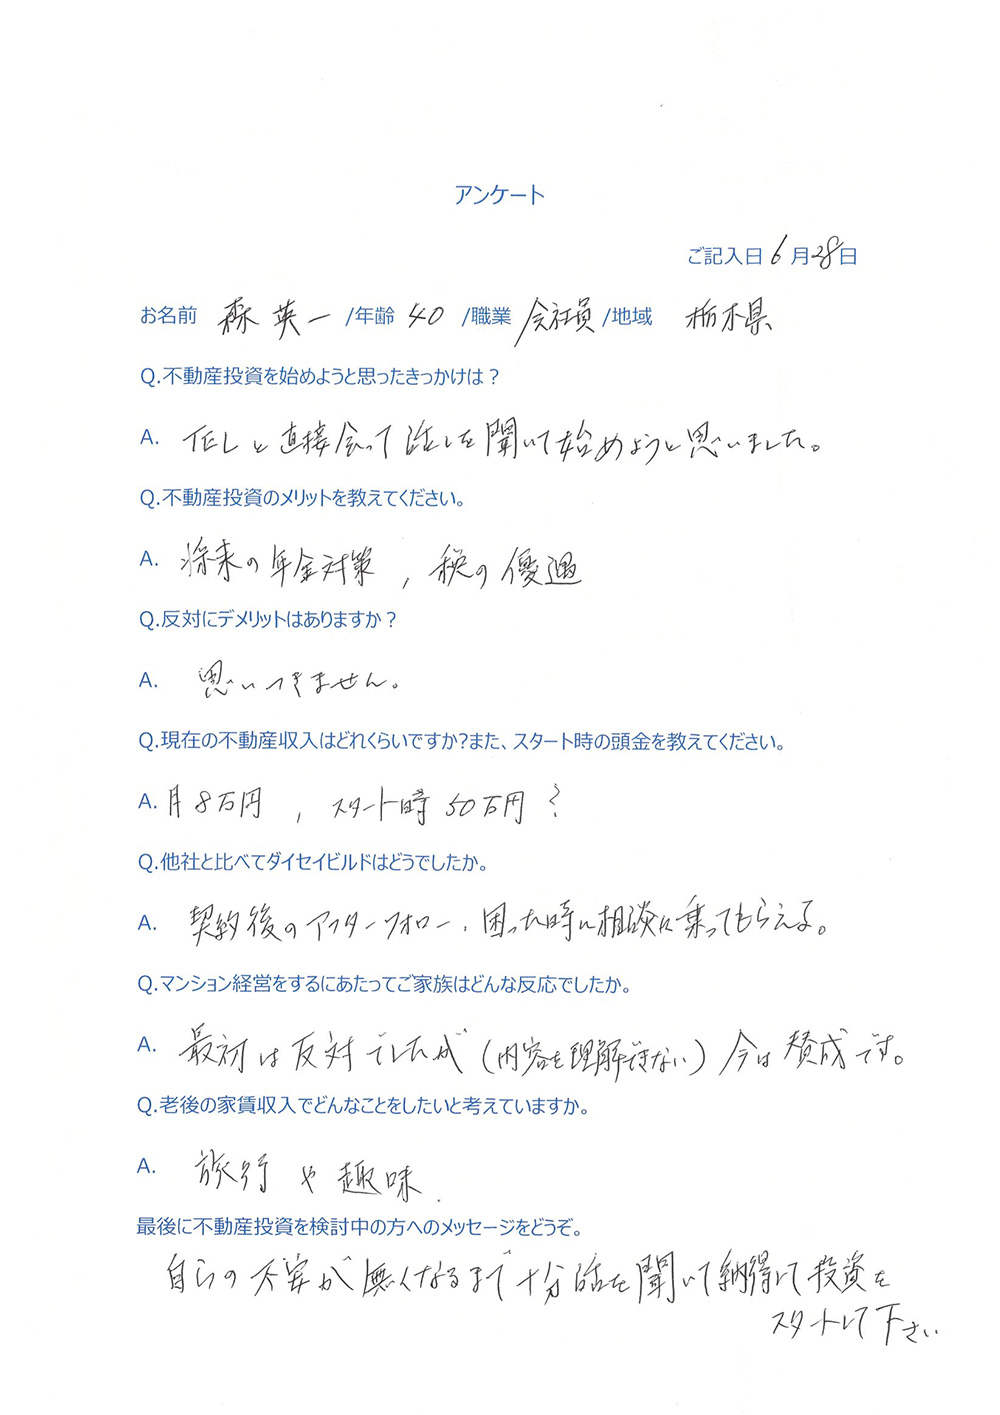 アンケート
ご記入日 6 月 28 日
お名前 森 英一 /年齢 40 /職業 会社員 /地域 栃木県
Q.不動産投資を始めようと思ったきっかけは？
A. TELと直接会って話しを聞いて始めようと思いました。
Q.不動産投資のメリットを教えてください。
A. 将来の年金対策 , 税の優遇
Q.反対にデメリットはありますか？
A. 思いつきません。
Q.現在の不動産収入はどれくらいですか?また、スタート時の頭金を教えてください。
A. 月8万円 , スタート時 50万円？
Q.他社と比べてダイセイビルドはどうでしたか。
A. 契約後のアフターフォロー、困った時に相談に乗ってもらえる。
Q.マンション経営をするにあたってご家族はどんな反応でしたか。
A. 最初は反対でしたが（内容を理解できない）今は賛成です。
Q.老後の家賃収入でどんなことをしたいと考えていますか。
A. 旅行や趣味.
最後に不動産投資を検討中の方へのメッセージをどうぞ。
自らの不安が無くなるまで十分話を聞いて納得して投資を
スタートして下さい